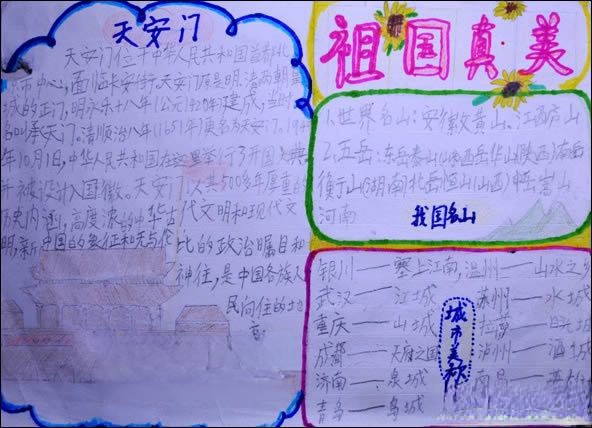 天安门
天安门位于中华人民共和国首都北
京市中心,面临长安街。天安门原是明、清两朝皇
城的正门,明永乐十八年(公元1420年)建成,当时
名叫承天门。清顺治八年(1651年)更名为天安门。194
年10月1日,中华人民共和国在这里举行了开国大典
并被设计入国徽。天安门以共500多年厚重的
历史内涵,高度浓的中华古代文明和现代文
明,新中国的象征和无与伦比的政治瞩目和
神往,是中国各族人
民向往的地
祖国真美
1.世界名山:安徽黄山。江西庐山
2.五岳:东岳泰山(山东)西岳华山(陕西)南岳
衡山(湖南)北岳恒山(山西)中岳嵩山
河南
我国名山
银川——塞上江南,温州——山水之乡
武汉——江城 苏州——水城
重庆——山城 拉萨——日光城
成都——天府之国 泸州——酒城
济南——泉城 南昌——英雄
青岛——岛城
城市美称